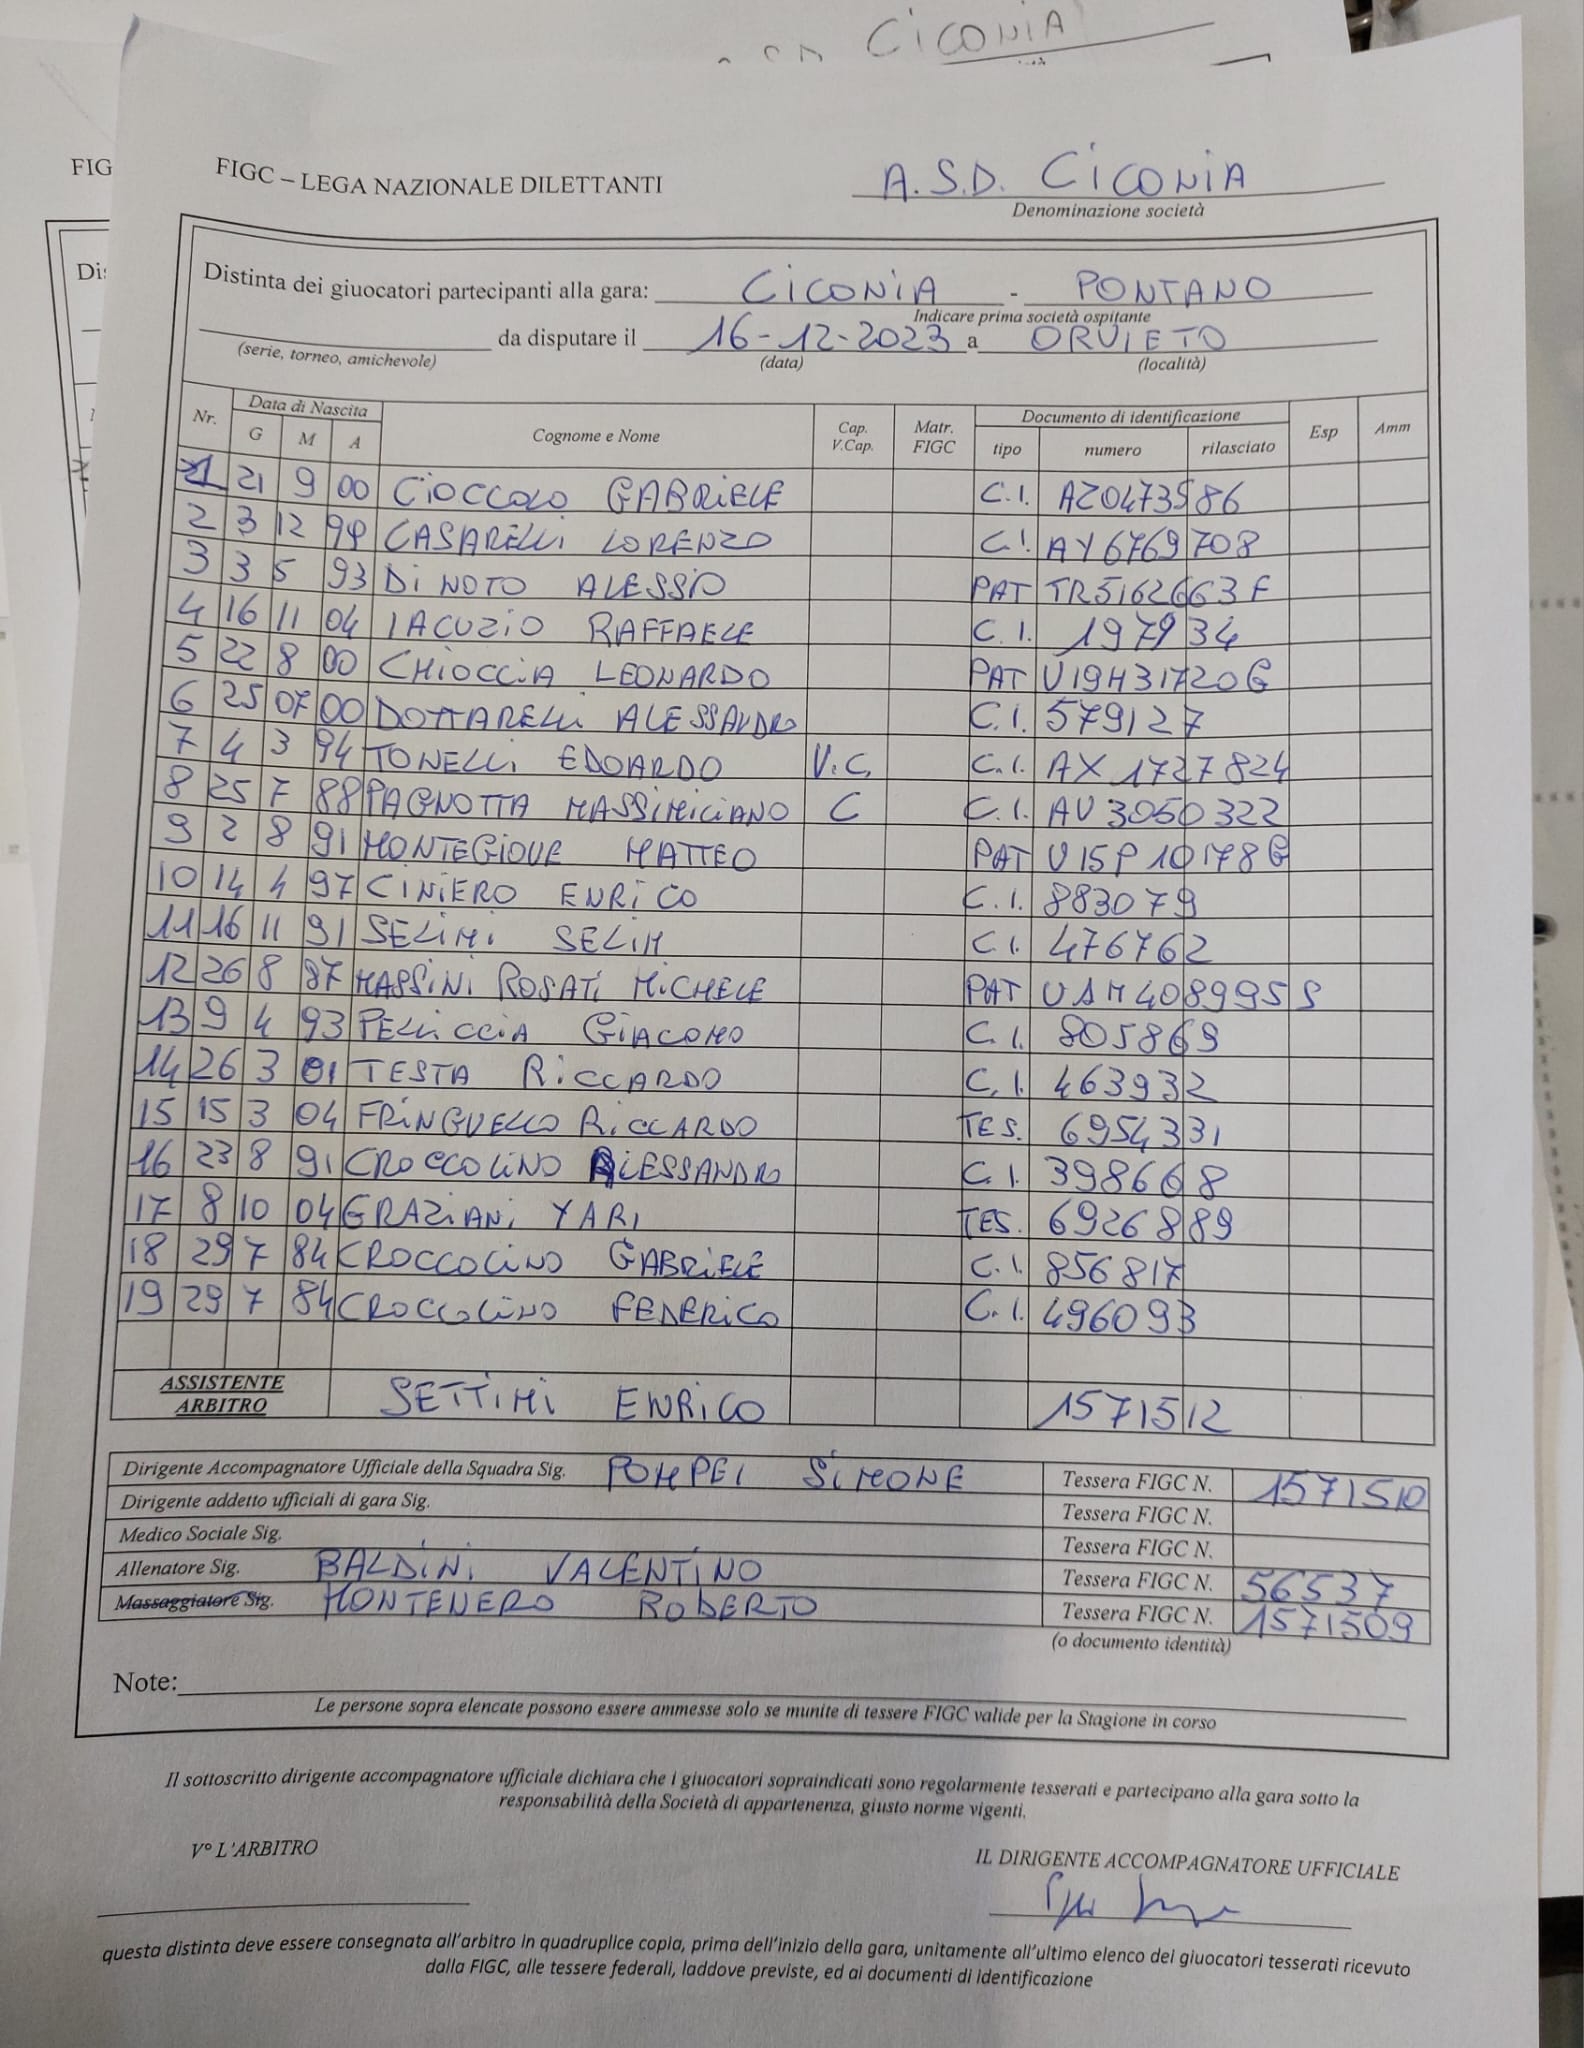 CICONIA
FIG
FIGC – LEGA NAZIONALE DILETTANTI
A.S.D. CICONIA
Denominazione società
Distinta dei giuocatori partecipanti alla gara: CICONIA - PONTANO
Indicare prima società ospitante
da disputare il 16-12-2023 a ORVIETO
(serie, torneo, amichevole) (data) (località)
Nr. Data di Nascita Cognome e Nome Cap. V.Cap. Matr. FIGC Documento di identificazione Esp Amm
G M A tipo numero rilasciato
1 21 9 00 CIOCCOLO GABRIELE C.I. AZ0473586
2 3 12 99 CASARELLI LORENZO C.I. AY6769708
3 3 5 93 DI NOTO ALESSIO PAT TR5162663F
4 16 11 04 IACUZIO RAFFAELE C.I. 197934
5 22 8 00 CHIOCCIA LEONARDO PAT U19H31720G
6 25 07 00 DOTTARELLI ALESSANDRO C.I. 579127
7 4 3 94 TONELLI EDOARDO V.C. C.I. AX 1727824
8 25 7 88 PAGNOTTA MASSIMILIANO C C.I. AV 3050322
9 2 8 91 MONTEGIOVE MATTEO PAT U15P10178G
10 14 4 97 CINIERO ENRICO C.I. 883079
11 16 11 91 SELIMI SELIM C.I. 476762
12 26 8 87 MASSINI ROSATI MICHELE PAT U1M408995S
13 9 4 93 PELLICCIA GIACOMO C.I. 805869
14 26 3 01 TESTA RICCARDO C.I. 463932
15 15 3 04 FRINGUELLO RICCARDO TES. 6954331
16 23 8 91 CROCCOLINO ALESSANDRO C.I. 398668
17 8 10 04 GRAZIANI YARI TES. 6926889
18 29 7 84 CROCCOLINO GABRIELE C.I. 856817
19 29 7 84 CROCCOLINO FEDERICO C.I. 496093
ASSISTENTE ARBITRO SETTIMI ENRICO 1571512
Dirigente Accompagnatore Ufficiale della Squadra Sig. POMPEI SIMONE Tessera FIGC N. 1571510
Dirigente addetto ufficiali di gara Sig. Tessera FIGC N.
Medico Sociale Sig. Tessera FIGC N.
Allenatore Sig. BALDINI VALENTINO Tessera FIGC N. 56537
Massaggiatore Sig. MONTENERO ROBERTO Tessera FIGC N. 1571509
(o documento identità)
Note:
Le persone sopra elencate possono essere ammesse solo se munite di tessere FIGC valide per la Stagione in corso
Il sottoscritto dirigente accompagnatore ufficiale dichiara che i giuocatori sopraindicati sono regolarmente tesserati e partecipano alla gara sotto la
responsabilità della Società di appartenenza, giusto norme vigenti.
V° L'ARBITRO
IL DIRIGENTE ACCOMPAGNATORE UFFICIALE
questa distinta deve essere consegnata all'arbitro in quadruplice copia, prima dell'inizio della gara, unitamente all'ultimo elenco dei giuocatori tesserati ricevuto
dalla FIGC, alle tessere federali, laddove previste, ed ai documenti di identificazione